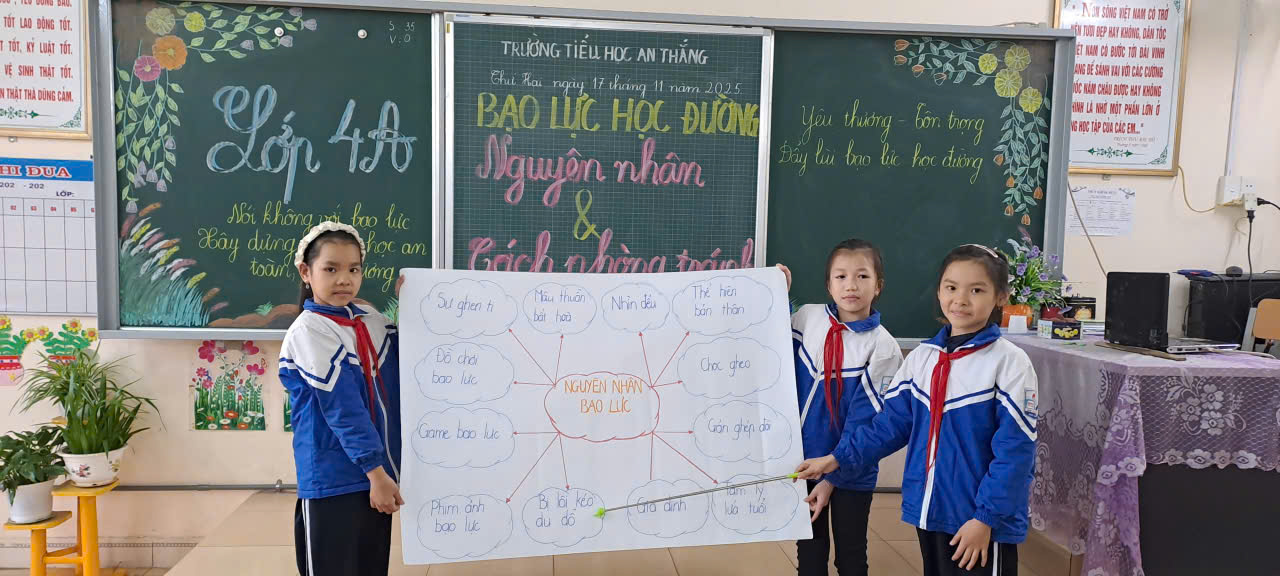 TỐT LAO ĐỘNG TỐT.
TỐT, KỶ LUẬT TỐT.
VỆ SINH THẬT TỐT.
THẬT THÀ DŨNG CẢM.
THI ĐUA
LỚP:
S: 35
V: 0
Lớp 4A
Nói không với bạo lực
Xây dựng học an
toàn, thương
TRƯỜNG TIỂU HỌC AN THẮNG
Thứ Hai ngày 17 tháng 11 năm 2025
BẠO LỰC HỌC ĐƯỜNG
Nguyên nhân
&
Cách phòng tránh
Yêu thương - Tôn trọng
Đẩy lùi bạo lực học đường
NON SÔNG VIỆT NAM CÓ TRỞ
NÊN TƯƠI ĐẸP HAY KHÔNG, DÂN TỘC
VIỆT NAM CÓ BƯỚC TỚI ĐÀI VINH
QUANG ĐỂ SÁNH VAI VỚI CÁC CƯỜNG
QUỐC NĂM CHÂU ĐƯỢC HAY KHÔNG
CHÍNH LÀ NHỜ MỘT PHẦN LỚN Ở
CÔNG HỌC TẬP CỦA CÁC EM..."
Sự ghen tị
Mâu thuẫn
bất hoà
Nhìn đểu
Thể hiện
bản thân
Đồ chơi
bạo lực
NGUYÊN NHÂN
BẠO LỰC
Chọc ghẹo
Game bạo lực
Gán ghép đôi
Phim ảnh
bạo lực
Bị lôi kéo
dụ dỗ
Gia đình
Tâm lý
lứa tuổi